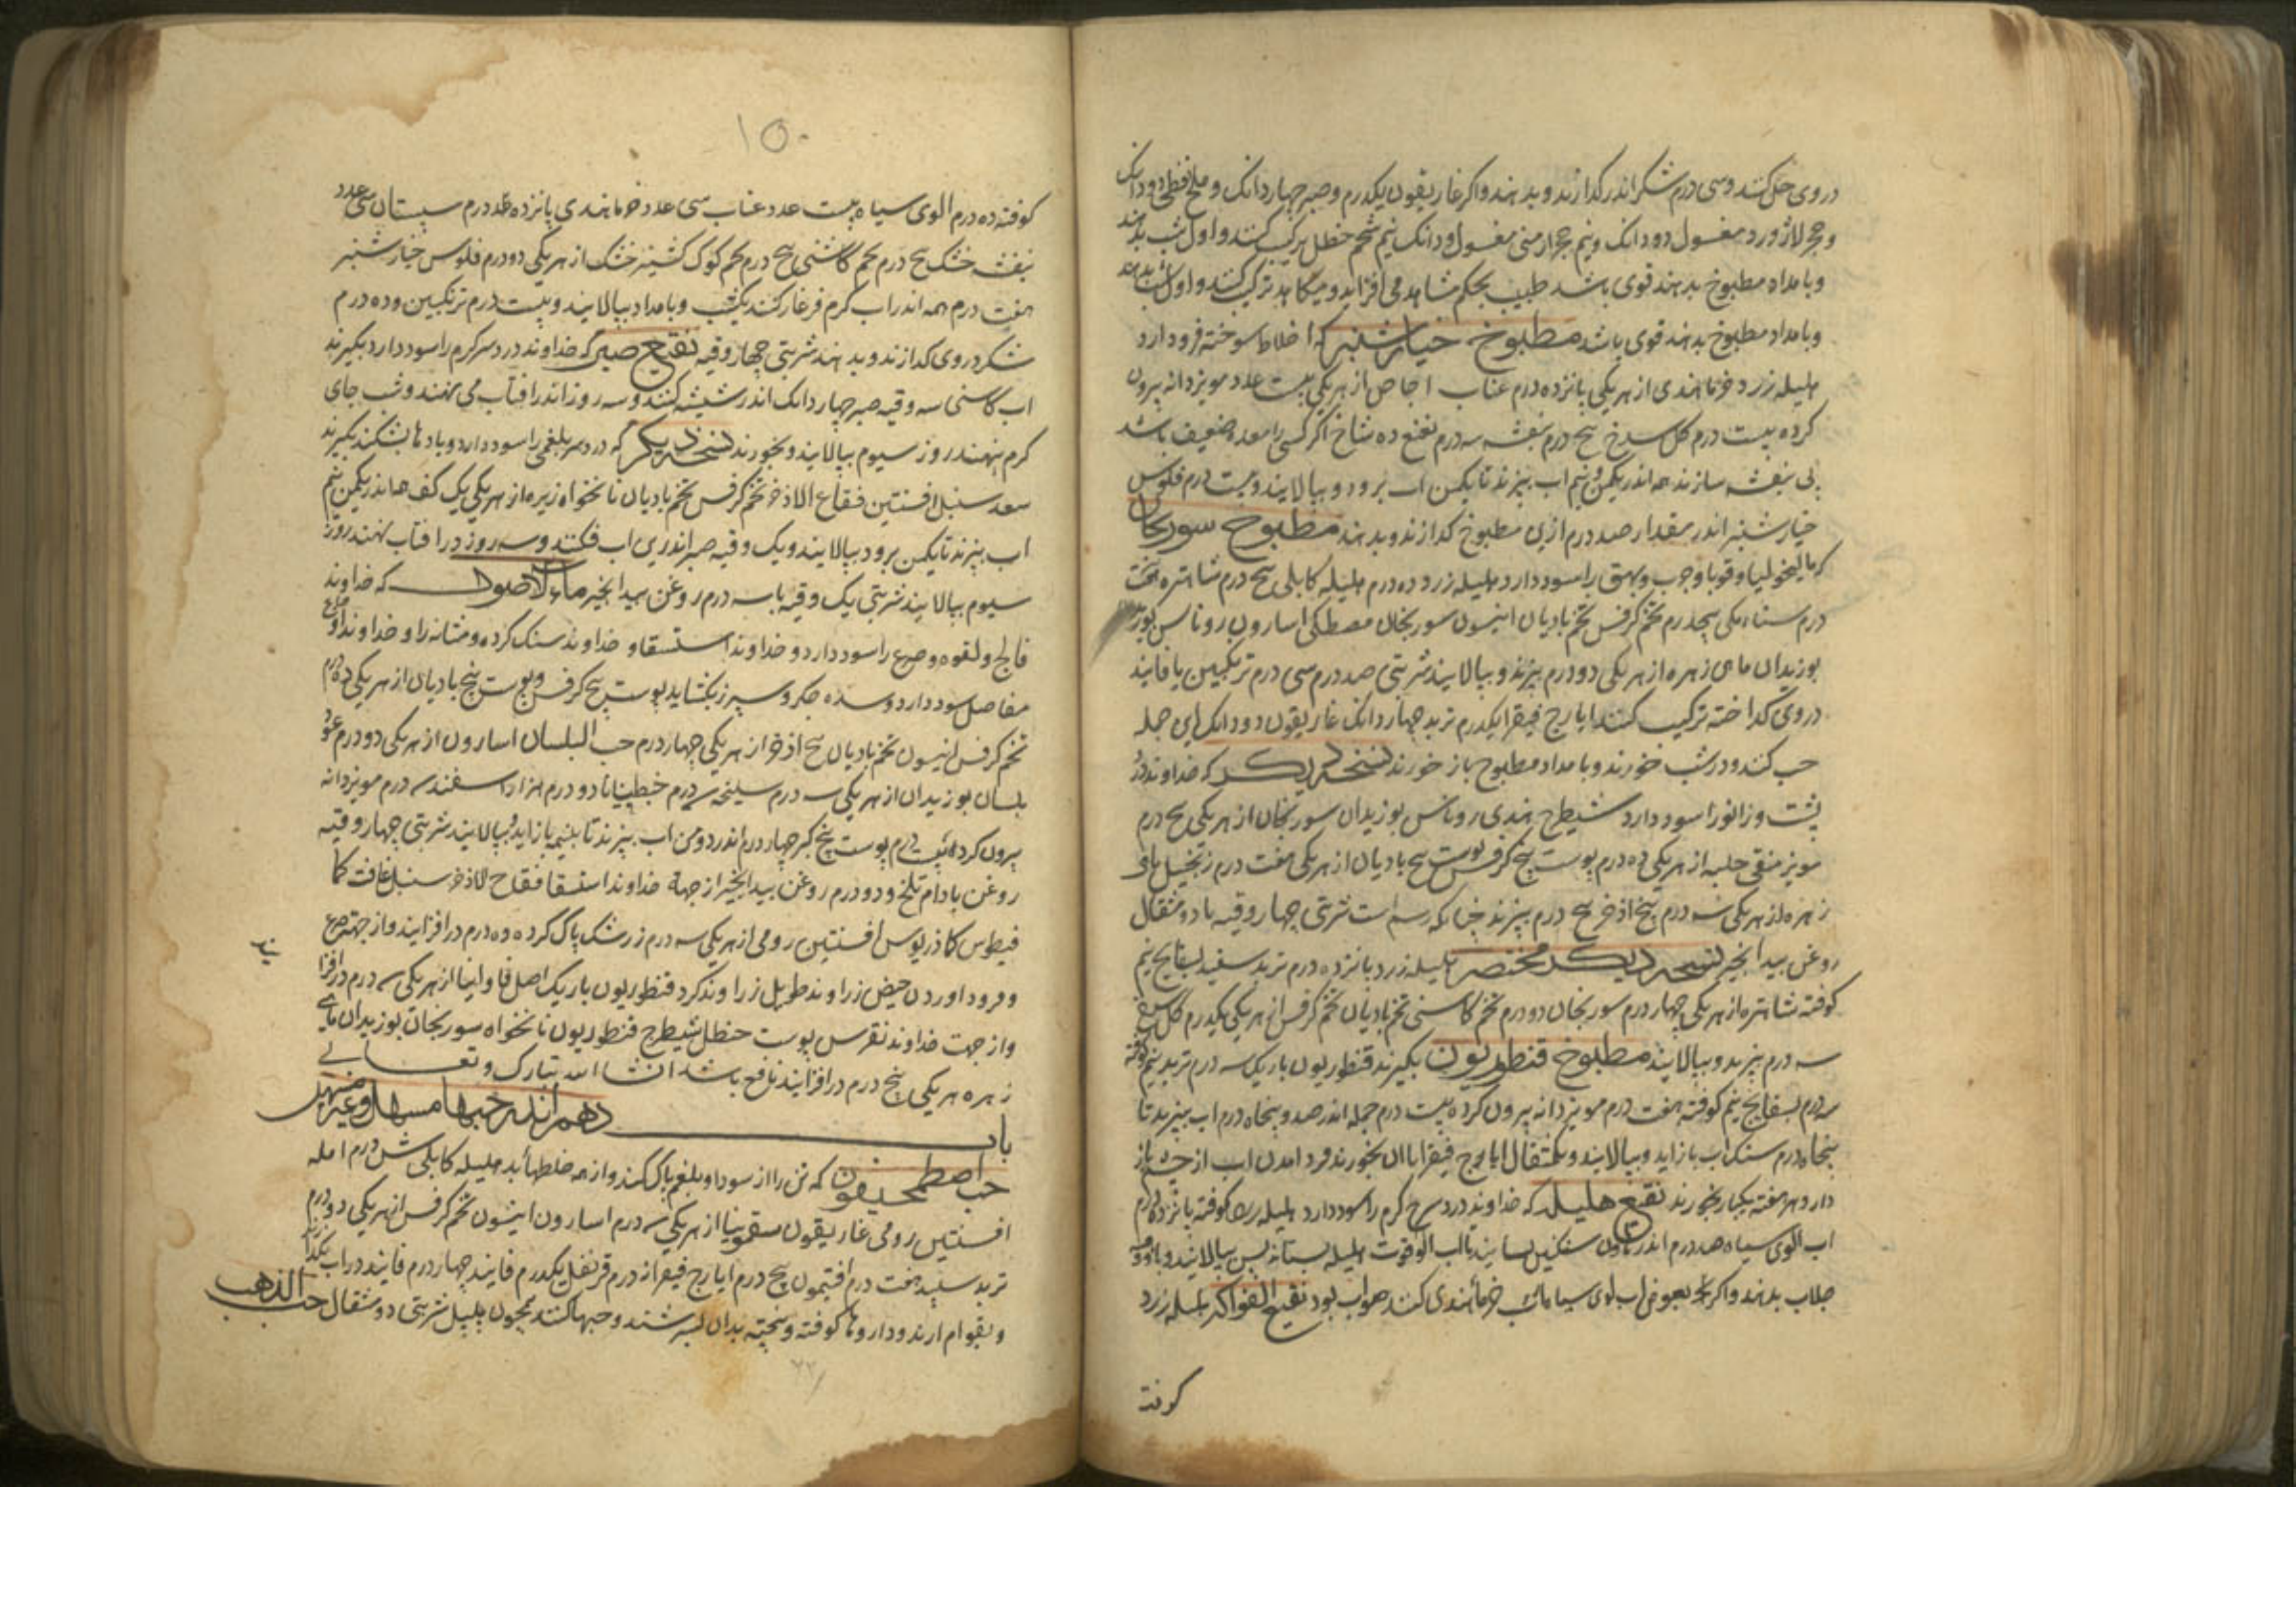 در وی حل کنند و سی درم شکر اندر گدازند و بدهند و اگر غاریقون یکدرم و صبر چهار دانک و ملح نفطی دو دانک
و حجر لاژورد مغسول دو دانک و نیم حجر ارمنی مغسول دو دانک نیم شحم حنظل ترکیب کنند و اول شب بدهند
و بامداد مطبوخ بدهند قوی باشد طبیب بحکم مشاهده می افزاید و میکاهد ترکیب کنند و اول شب بدهند
و بامداد مطبوخ بدهند قوی باشد مطبوخ خیارشنبر که اخلاط سوخته فرود آرد
هلیله زرد خرما هندی از هر یکی پانزده درم عناب اجاص از هر یکی بیست عدد مویز دانه بیرون
کرده بیست درم کل سرخ پنج درم بنفشه سه درم نعنع ده شاخ اگر کسی را معده ضعیف باشد
بی بنفشه سازند همه اندر یکمن و نیم اب بپزند تا یکمن اب برود و بپالایند و بیست درم فلوس
خیارشنبر اندر مقدار صد درم ازین مطبوخ گدازند و بدهند مطبوخ سورنجان
که مالیخولیا و قوبا و جرب و بهق را سود دارد هلیله زرد ده درم هلیله کابلی پنج درم شاهتره هفت
درم سناء مکی پنجدرم تخم کرفس تخم بادیان انیسون سورنجان مصطکی اسارون روناس
بوزیدان ماهی زهره از هر یکی دو درم بپزند و بپالایند شربتی صد درم سی درم ترنکبین یا فانید
در وی گداخته ترکیب کنند ایارج فیقرا یکدرم تربد چهار دانک غاریقون دو دانک این جمله
حب کنند و در شب خورند و بامداد مطبوح باز خورند نسخه دیکر که خداوند درد
پشت و زانو را سود دارد شیطرج هندی روناس بوزیدان سورنجان از هر یکی پنج درم
مویز منقی حلبه از هر یکی ده درم پوست پنج کرفس پوست بیخ بادیان از هر یکی هفت درم زنجبیل ماهی
زهره از هر یکی سه درم بیخ اذخر پنج درم بپزند چنانکه رسم است شربتی چهار وقیه با دو مثقال
روغن بیدانجیر نسخه دیکر مختصر هلیله زرد پانزده درم تربد سفید بسفایج نیم
کوفته شاهتره از هر یکی چهار درم سورنجان دو درم تخم کاسنی تخم بادیان تخم کرفس از هر یکی یکدرم کل سرخ
سه درم بپزند و بپالایند مطبوخ قنطوریون بگیرند قنطوریون باریک سه درم تربد نیم کوفته
سه درم بسفایج نیم کوفته هفت درم مویز دانه بیرون کرده بیست درم جمله اندر صد و پنجاه درم اب بپزند تا
پنجاه درم سنک اب باز اید و بپالایند و یکمثقال ایارج فیقرا با ان بخورند فرود امدن اب از چشم باز
دارد هر هفته یکبار بخورند نقیع هلیله که خداوند درد سر کرم را سود دارد هلیله زرد کوفته پانزده درم
اب الوی سیاه صد درم اندر هاون سنکین بسایند تا اب الو قوت هلیله بستاند پس بپالایند و با دو وقیه
جلاب بدهند و اگر بعوض اب الوی سیاه اب خرما هندی کنند صواب بود نقیع الفواکه هلیله زرد
کوفته
۱۵۰
کوفته ده درم الوی سیاه بیست عدد عناب سی عدد خرما هندی پانزده درم سپستان سی عدد
بنفشه خشک پنج درم تخم کاشنی پنج درم تخم کوک کشنیز خشک از هر یکی دو درم فلوس خیارشنبر
هفت درم همه اندر اب کرم فرغار کنند یکشب و بامداد بپالایند و بیست درم ترنکبین و ده درم
شکر در وی گدازند و بدهند شربتی چهار وقیه نقیع صبر که خداوند درد سر کرم را سود دارد بگیرند
اب کاسنی سه وقیه صبر چهار دانک اندر شیشه کنند و سه روز اندر افتاب می نهند و شب جای
کرم بنهند روز سیوم بپالایند و بخورند نسخه دیکر که درد سر بلغمی را سود دارد و بادها بشکند بگیرند
سعد سنبل افسنتین فقاع الاذخر تخم کرفس تخم بادیان نانخواه زیره از هر یکی یک کف همه اندر یکمن نیم
اب بپزند تا یکمن برود بپالایند و یک وقیه صبر اندرین اب فکنند و سه روز در افتاب نهند روز
سیوم بپالایند شربتی یک وقیه با سه درم روغن بیدانجیر ماء الاصول که خداوند
فالج و لقوه و صرع را سود دارد و خداوند استسقا و خداوند سنک کرده و مثانه را و خداوند اوجاع
مفاصل سود دارد و سده جکر و سپرز بکشاید پوست بیخ کرفس و پوست بیخ بادیان از هر یکی ده درم
تخم کرفس انیسون تخم بادیان بیخ اذخر از هر یکی چهار درم حب البلسان اسارون از هر یکی دو درم عود
بلسان بوزیدان از هر یکی سه درم سلیخه سه درم جنطیانا دو درم هزار اسفند سه درم مویز دانه
بیرون کرده بیست درم پوست بیخ کبر چهار درم اندر دو من اب بپزند تا بنیمه باز اید و بپالایند شربتی چهار وقیه
روغن بادام تلخ و دو درم روغن بیدانجیر از جهة خداوند استسقا فقاح الاذخر سنبل غافت کما
فیطوس کمادریوس افسنتین رومی از هر یکی سه درم زرشک پاک کرده ده درم در افزایند و از جهت صرع
و فرود اوردن حیض زراوند طویل زراوند کرد قنطوریون باریک اصل فاوانیا از هر یکی سه درم در افزا
یند
و از جهت خداوند نقرس پوست حنظل شیطرج قنطوریون نانخواه سورنجان بوزیدان ماهی
زهره هر یکی پنج درم در افزایند نافع باشد انشا الله تبارک و تعالی
باب دهم اندر حبها مسهل و غیر مسهل
حب اصطمحیقون که تن را از سودا و بلغم پاک کند و از همه خلطها بد هلیله کابلی شش درم امله
افسنتین رومی غاریقون سقمونیا از هر یکی سه درم اسارون انیسون تخم کرفس از هر یکی دو درم
تربد سپید هفت درم افتیمون پنج درم ایارج فیقرا ده درم قرنفل یکدرم فانید چهار درم فانید در اب بکدازند
و بقوام ارند و داروها کوفته و بیخته بدان بسرشند و حبها کنند همچون پلپل شربتی دو مثقال حب الذهب